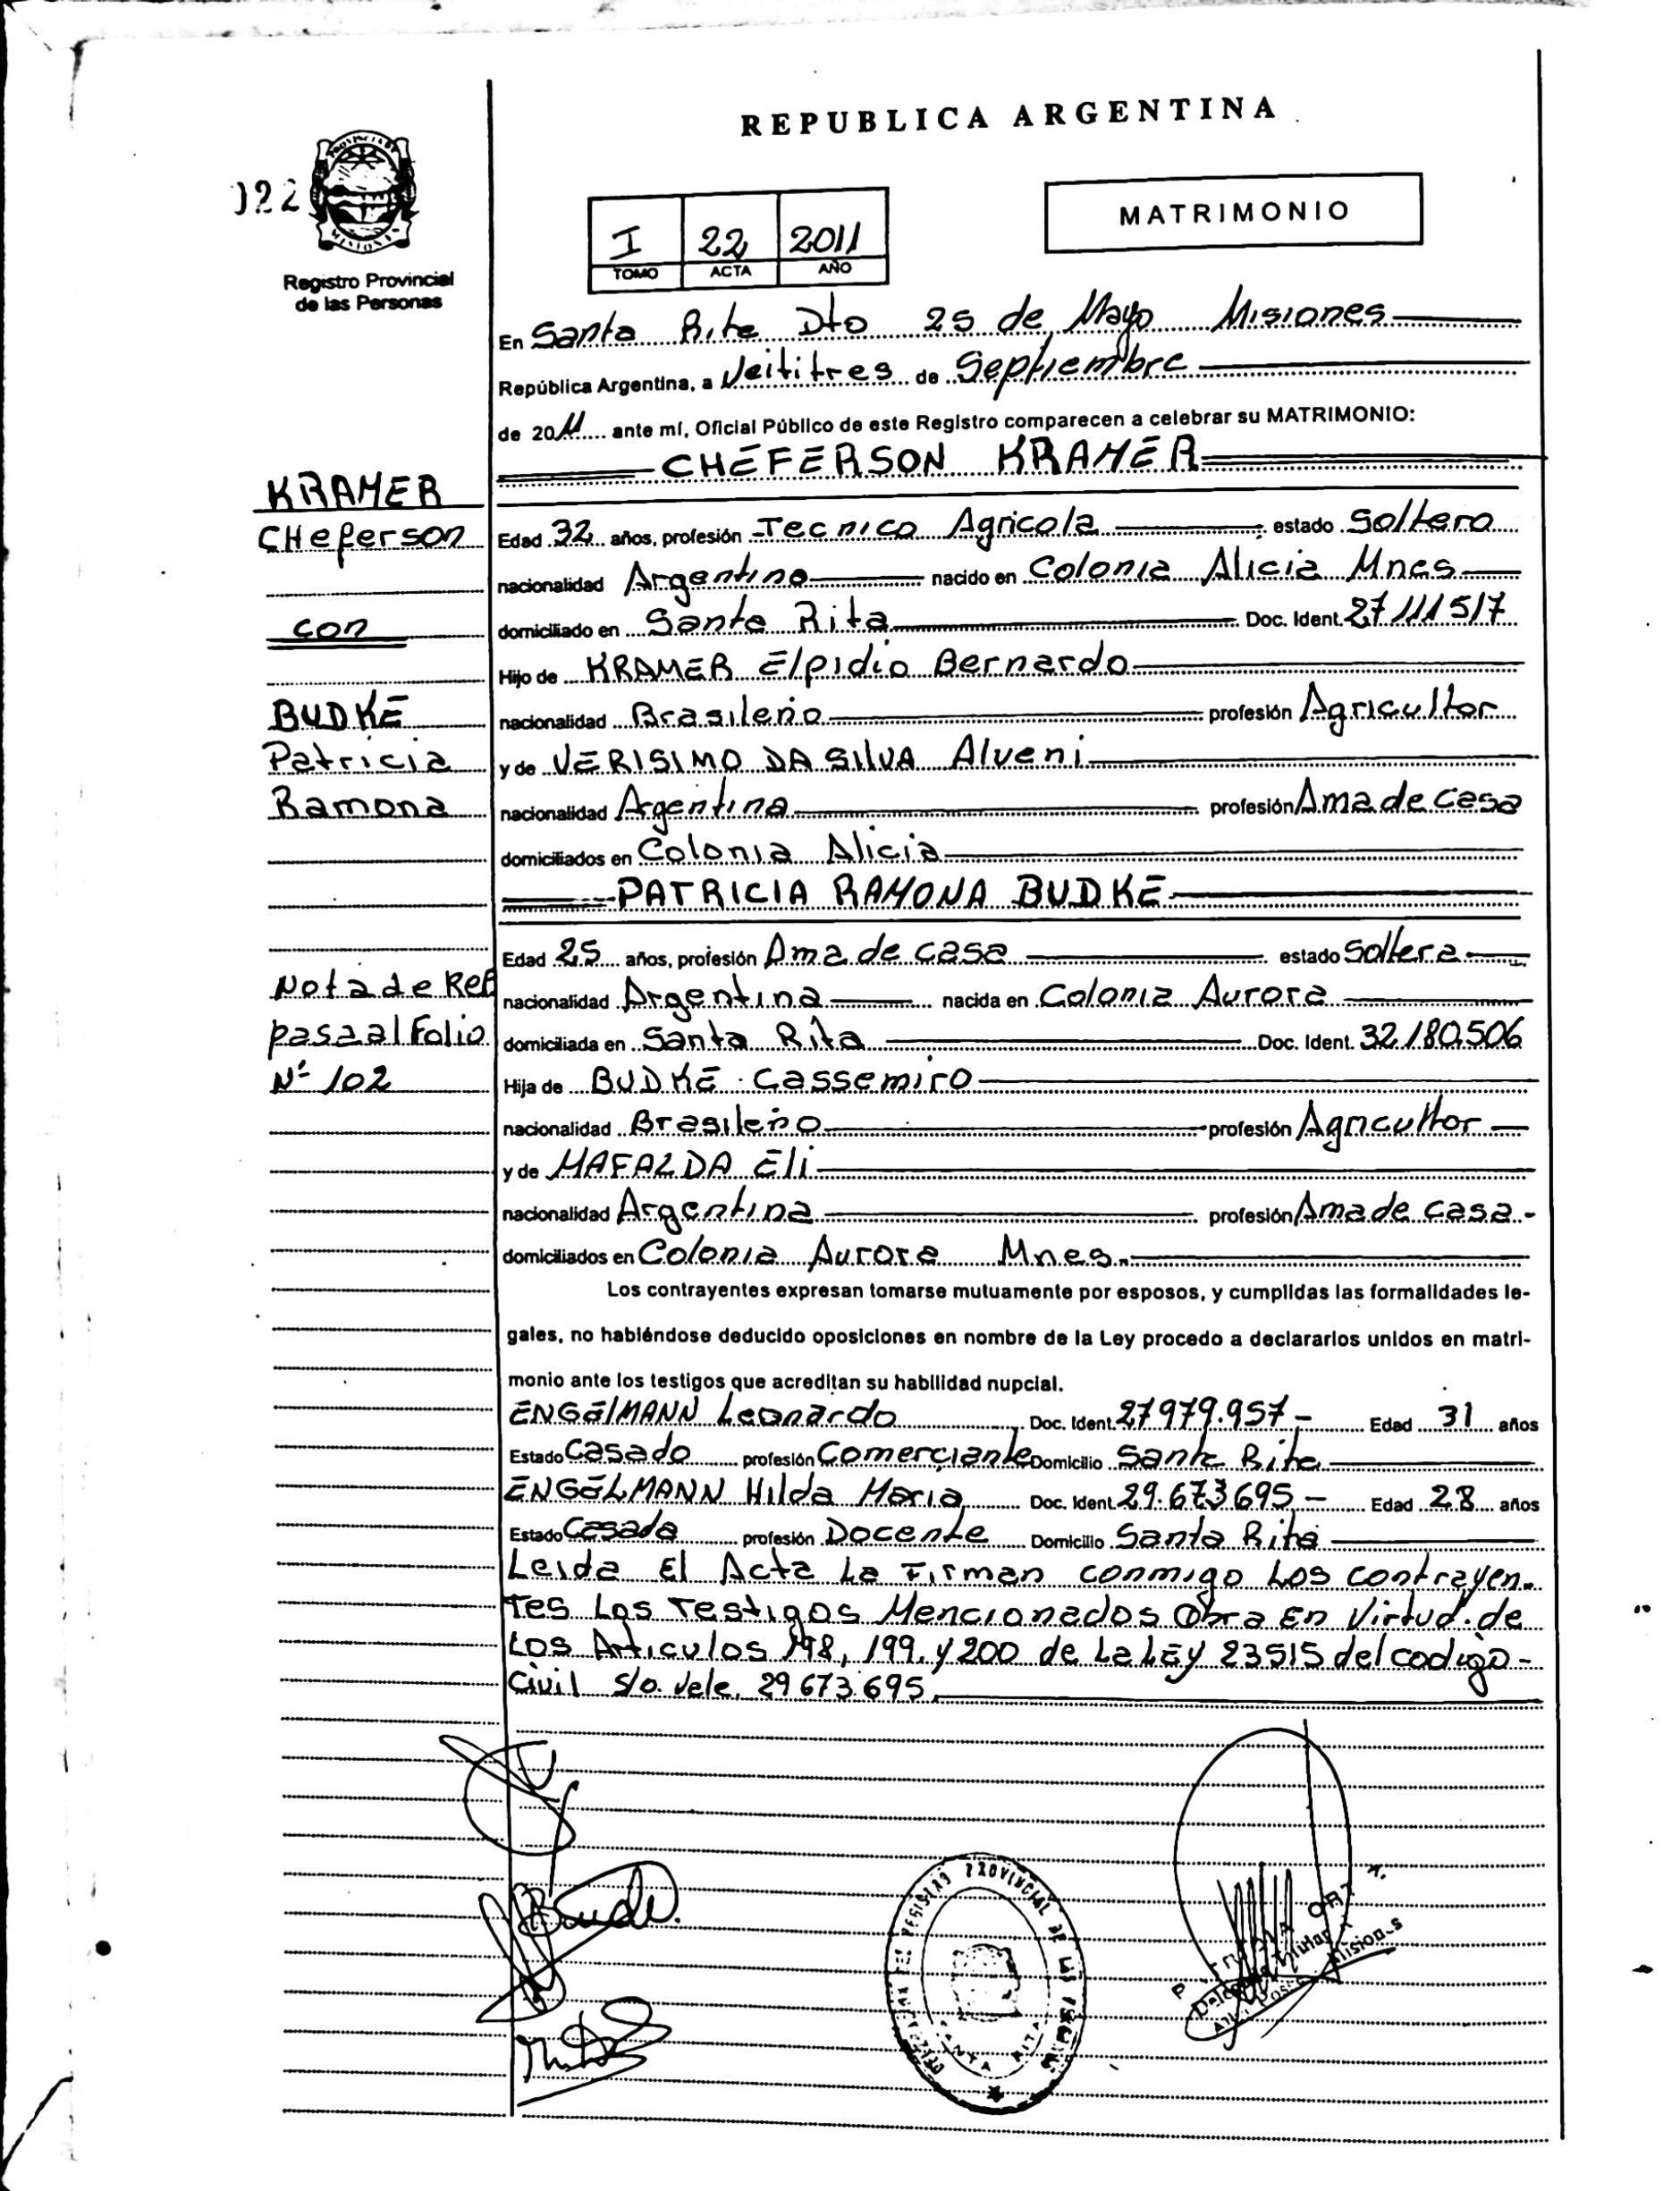 REPUBLICA ARGENTINA
022
PROVINCIA DE
MISIONES
Registro Provincial
de las Personas
I 22 2011
TOMO ACTA AÑO
MATRIMONIO
En Santa Rita Dto 25 de Mayo Misiones
República Argentina, a Veititres de Septiembre
de 2011 ante mí, Oficial Público de este Registro comparecen a celebrar su MATRIMONIO:
CHEFERSON KRAMER
KRAMER
CHeferson
con
BUDKE
Patricia
Ramona
Edad 32 años, profesión Tecnico Agricola estado Soltero
nacionalidad Argentino nacido en Colonia Alicia Mnes
domiciliado en Santa Rita Doc. Ident. 27111517
Hijo de KRAMER Elpidio Bernardo
nacionalidad Brasileño profesión Agricultor
y de VERISIMO DA SILVA Alveni
nacionalidad Argentina profesión Ama de casa
domiciliados en Colonia Alicia
PATRICIA RAMONA BUDKE
Nota de Ref
pasa al Folio
Nº 102
Edad 25 años, profesión Ama de casa estado Soltera
nacionalidad Argentina nacida en Colonia Aurora
domiciliada en Santa Rita Doc. Ident. 32.180.506
Hija de BUDKE Cassemiro
nacionalidad Brasileño profesión Agricultor
y de MAFALDA Eli
nacionalidad Argentina profesión Ama de casa
domiciliados en Colonia Aurora Mnes.
Los contrayentes expresan tomarse mutuamente por esposos, y cumplidas las formalidades le-
gales, no habiéndose deducido oposiciones en nombre de la Ley procedo a declararlos unidos en matri-
monio ante los testigos que acreditan su habilidad nupcial.
ENGELMANN Leonardo Doc. Ident. 27979.957 - Edad 31 años
Estado Casado profesión Comerciante Domicilio Santa Rita
ENGELMANN Hilda Maria Doc. Ident. 29.673695 - Edad 28 años
Estado Casada profesión Docente Domicilio Santa Rita
Leida El Acta La Firman conmigo Los contrayen-
Tes Los Testigos Mencionados Obra En Virtud de
Los Articulos 198, 199 y 200 de La Ley 23515 del codigo-
Civil s/o. Vele. 29673.695
REGISTRO PROVINCIAL DE LAS PERSONAS
SANTA RITA
Misiones